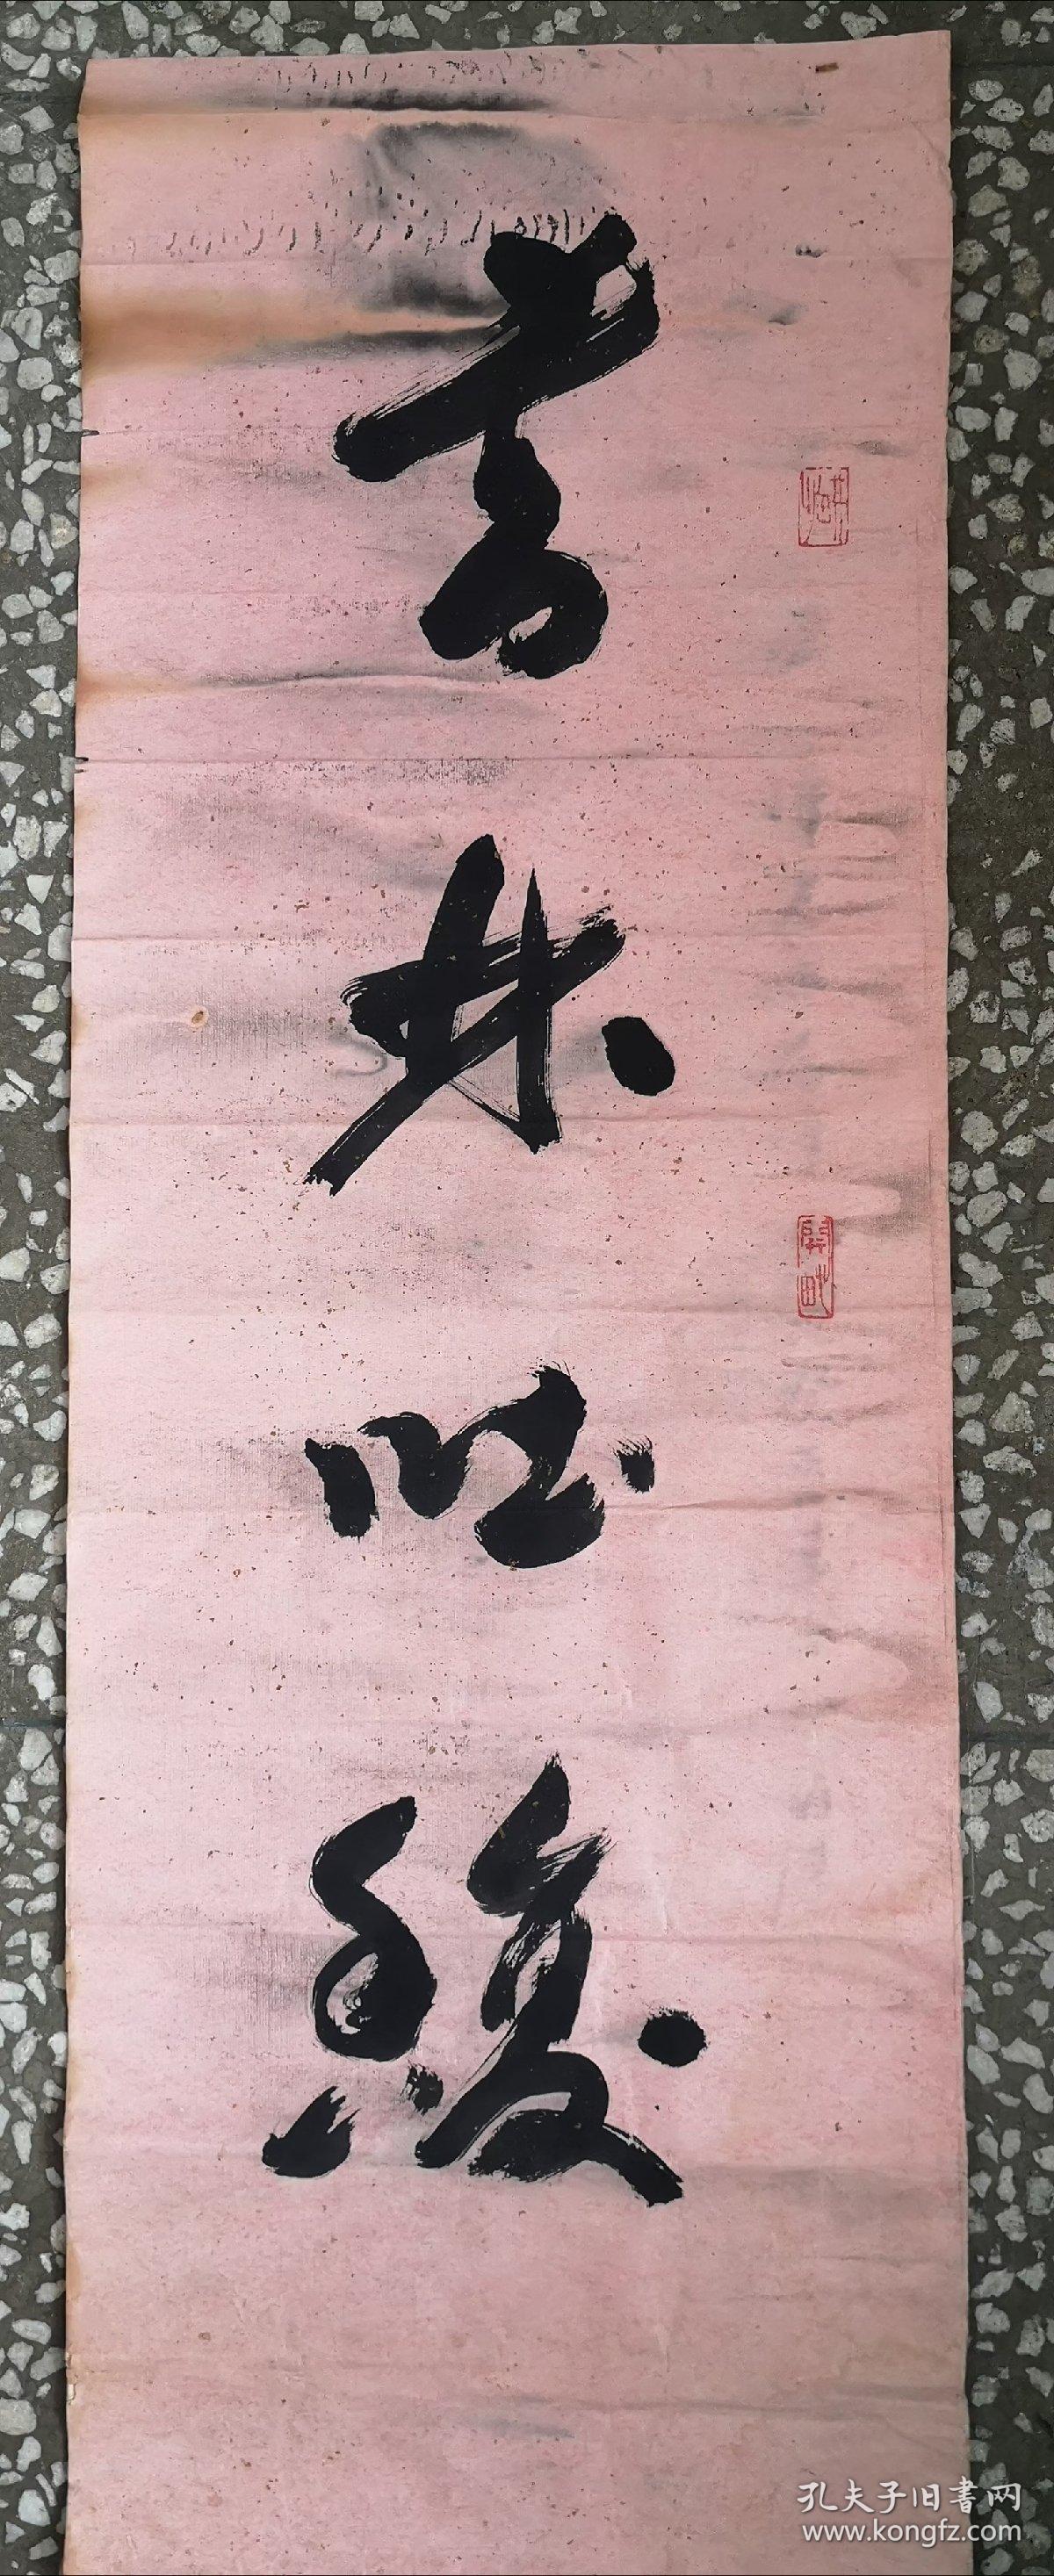 青林吐馥
孔夫子旧書网
www.kongfz.com